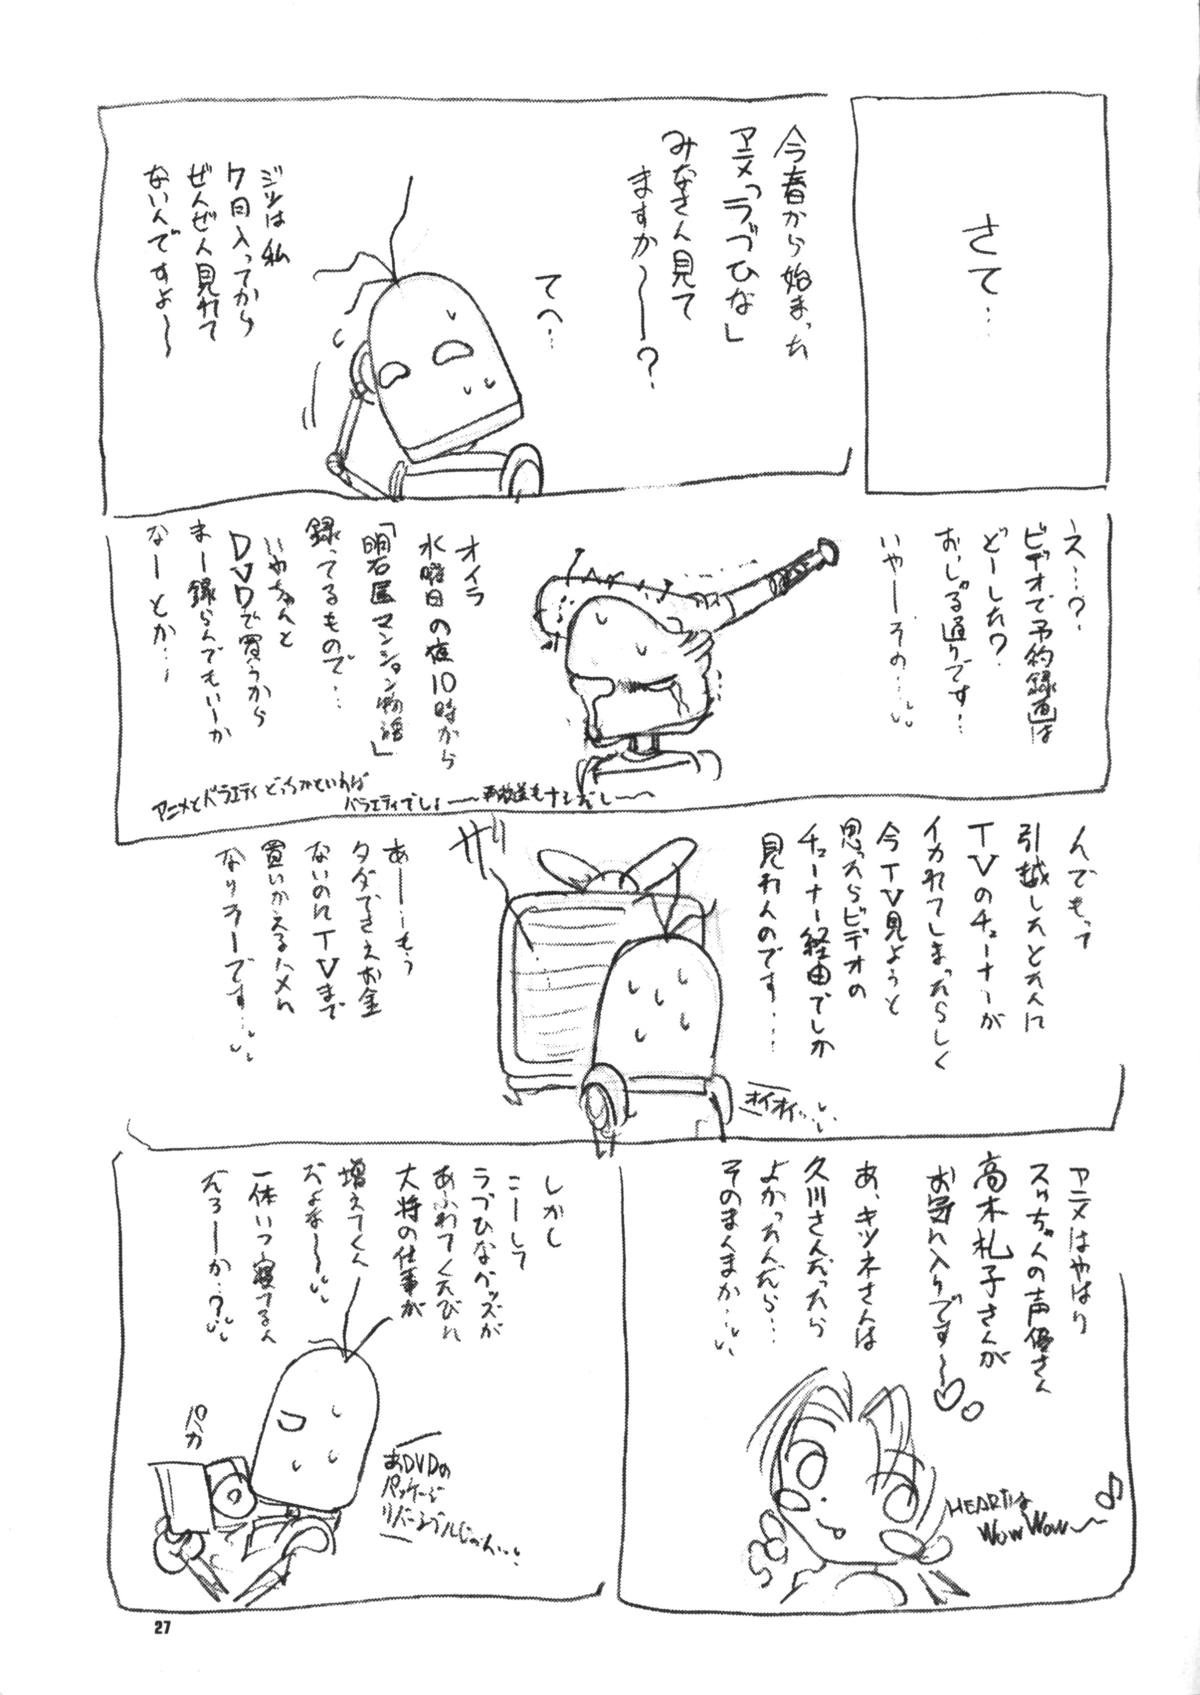 さて…
今春から始まった
アニメ「ラブひな」
みなさん見て
ますか〜〜?
てへ…
ジツは私
7日入ってから
ぜんぜん見れて
ないんですよ〜
え…?
ビデオで予約録画は
どーした?
おっしゃる通りです…
いやーその…
オイラ
水曜日の夜10時から
「明石屋マンション物語」
録ってるもので…
いやちゃんと
DVDで買うから
まー録らんでもいーか
なーとか…
アニメとバラエティどっちかといえば
バラエティでしょ〜〜再放送もナシだし〜〜
んでもって
引越したとたんに
TVのチューナーが
イカれてしまったらしく
今TV見ようと
思ったらビデオの
チューナー経由でしか
見れんのです…
ガリ
オイオイ…
あーーもう
タダでさえお金
ないのにTVまで
買いかえるハメに
なりそーです…
アニメはやはり
スゥちゃんの声優さん
高木礼子さんが
お気に入りです〜♡
あ、キツネさんは
久川さんだったら
よかったんだら…
そのまんまか…
HEARTは
WowWow〜♪
しかし
こーして
ラブひなグッズが
あふれてくたびに
大将の仕事が
増えてくん
だよな〜〜
一体いつ寝てるん
だろーか?
パカ
あDVDの
パッケージ
リバーシブルじゃん…
27